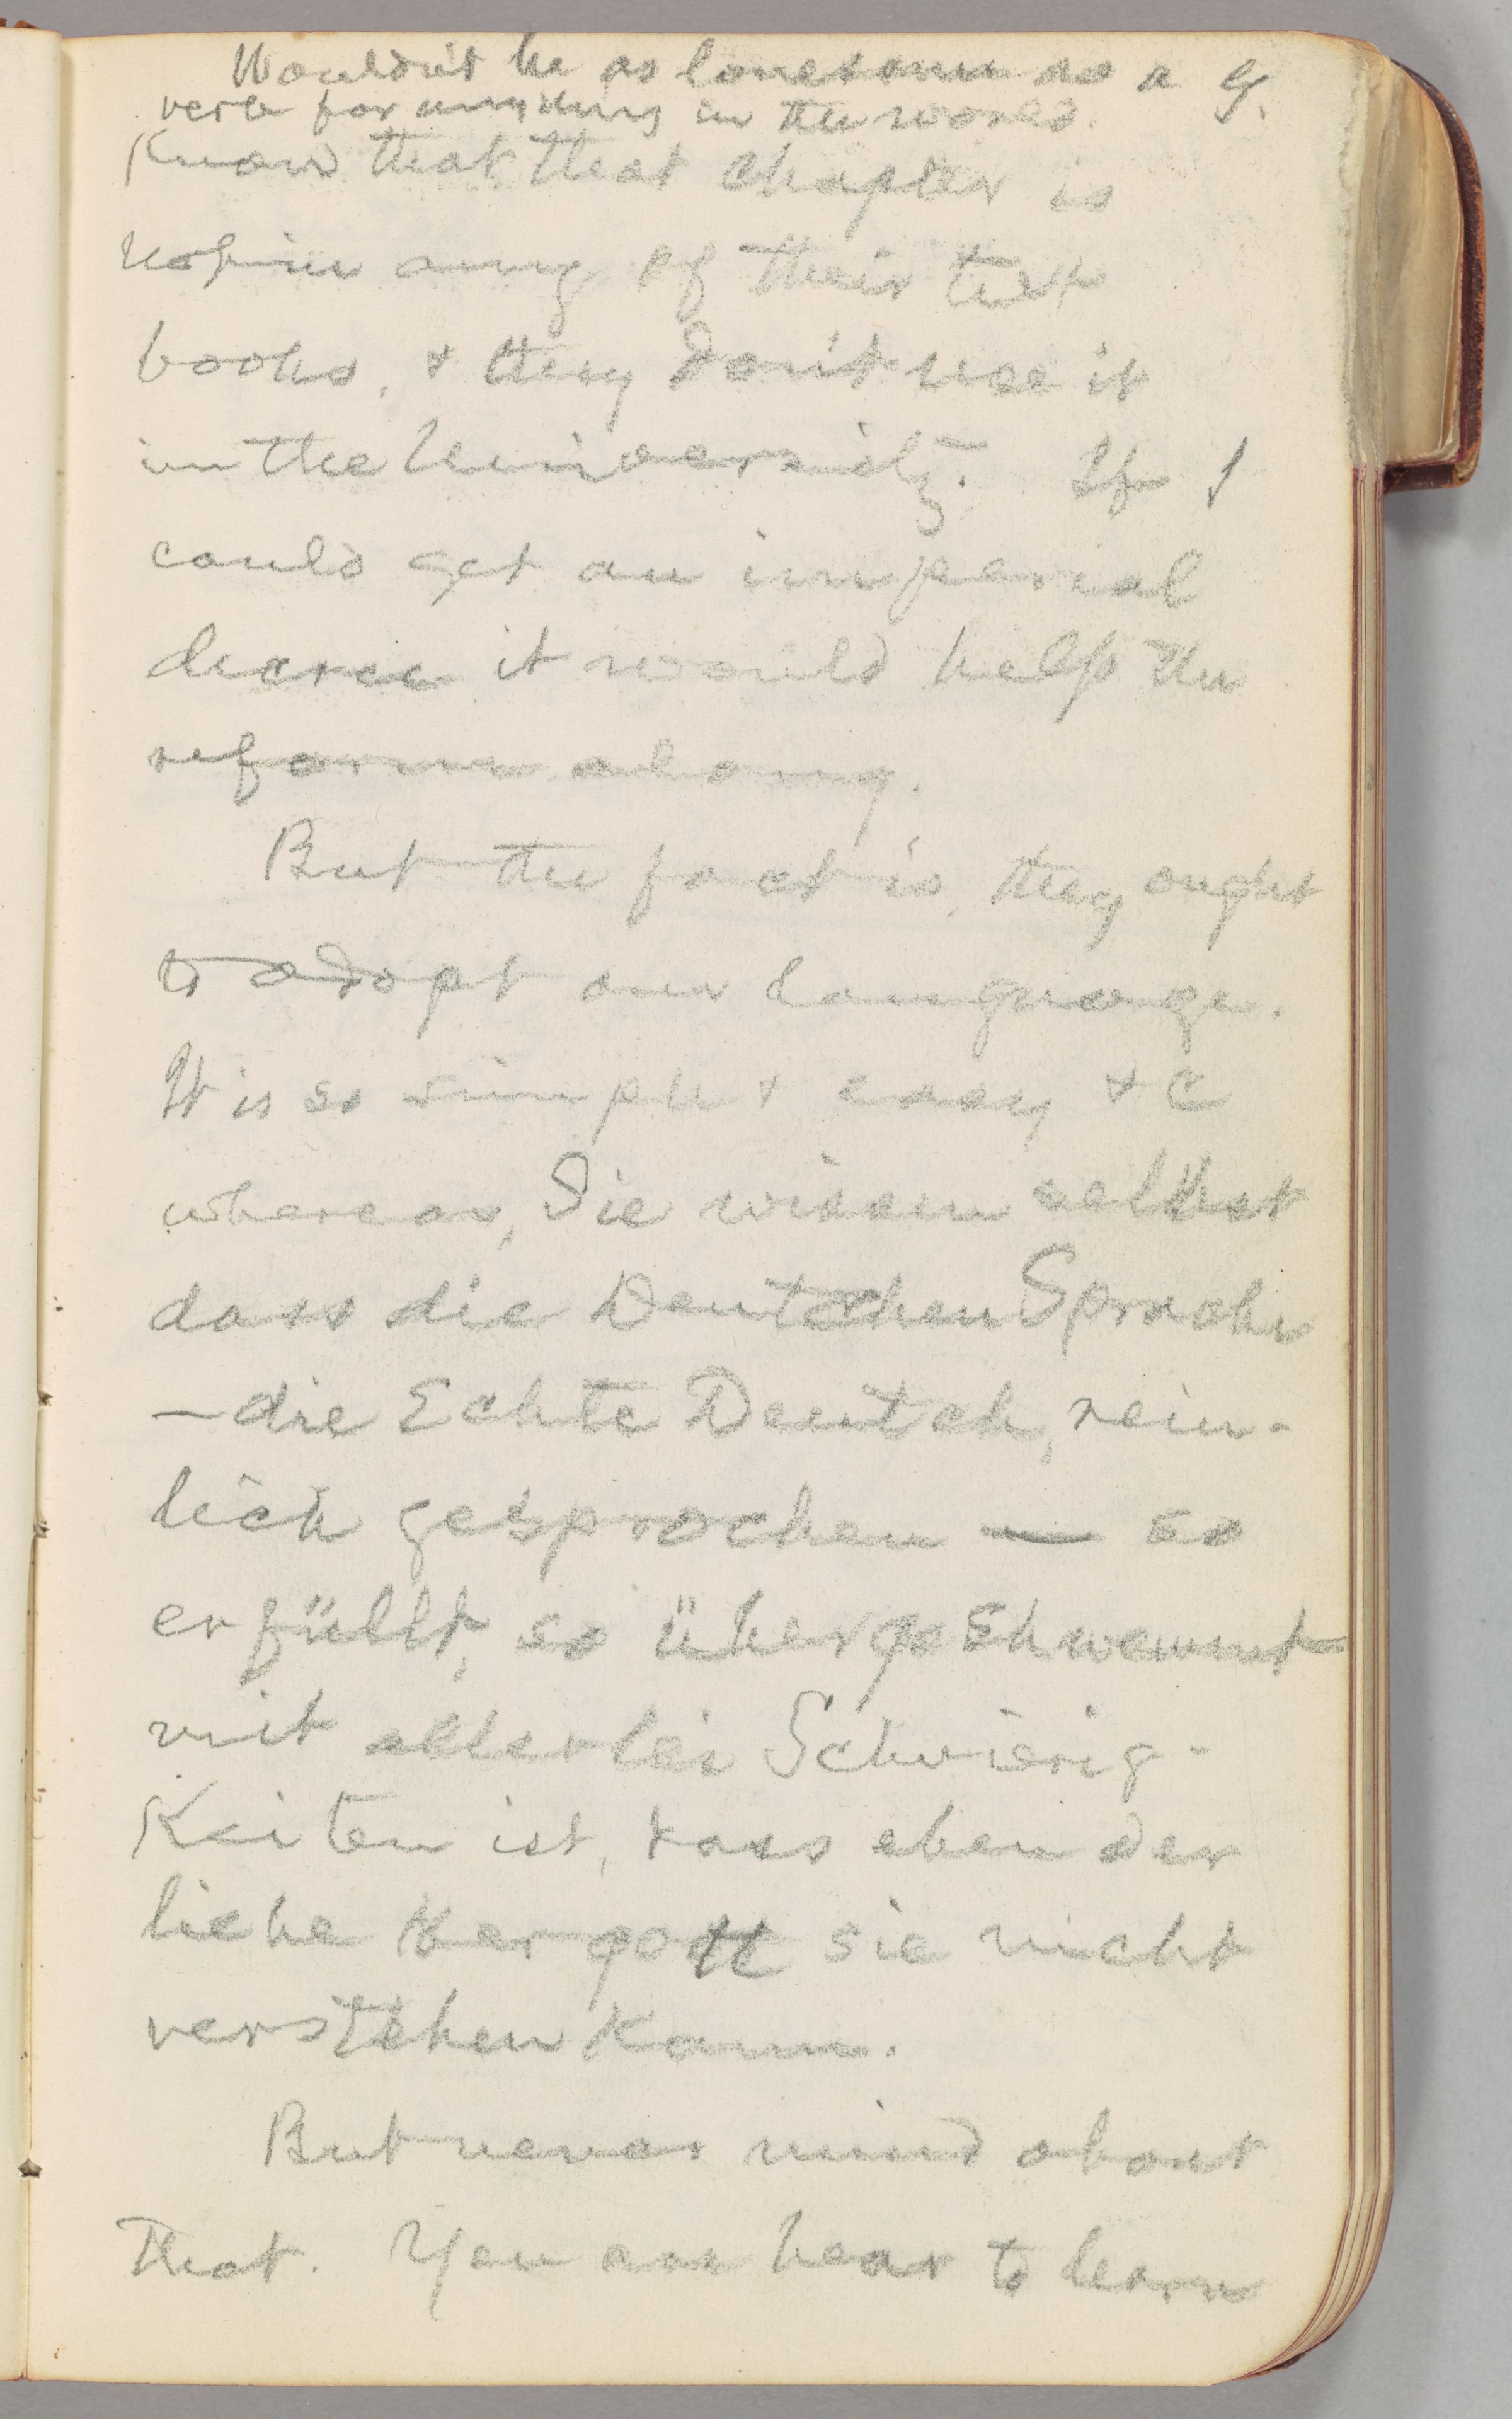 Wouldn't be as lonesome as a G.
verb for anything in the world.
Know that that chapter is
not in any of their text
books, & they don't use it
in the University. If I
could get an imperial
decree it would help the
reform along.
But the fact is, they ought
to adopt our language.
It is so simple & easy &c
whereas, Sie wissen selbst
dass die Deutschen Sprache
— die Echte Deutsch, rein-
lich gesprochen — so
erfüllt, so übergeschwemmt
mit allerlei Schwierig-
Keiten ist, dass eben der
liebe Hergott sie nicht
verstehen Kann.
But never mind about
That. You are hear to learn